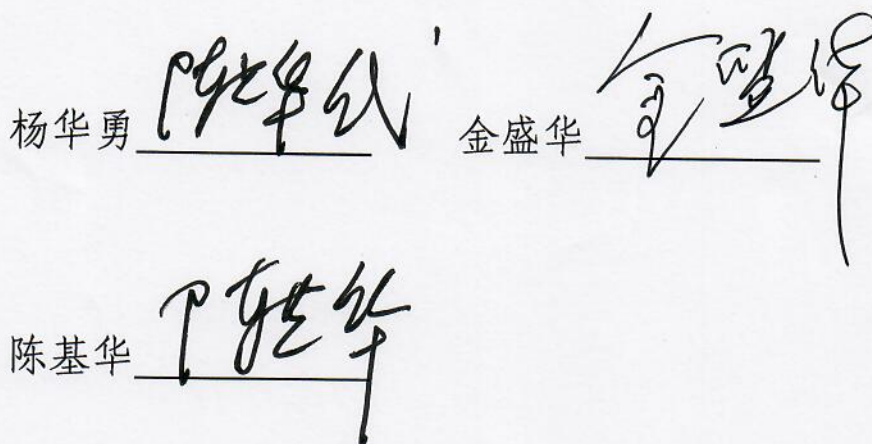 杨华勇 陈基华代 金盛华 金盛华
陈基华 陈基华